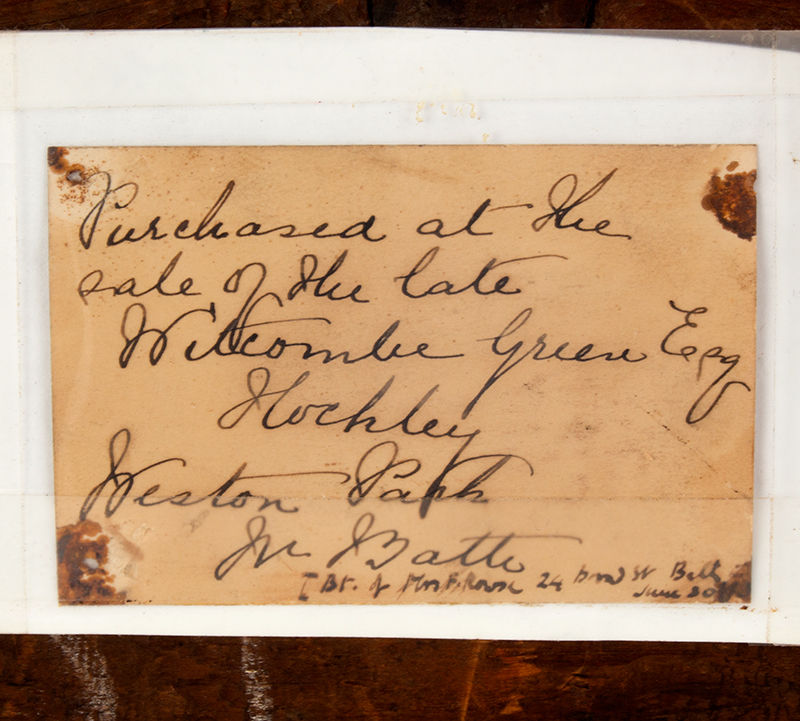 Purchased at the
sale of the late
Witcombe Green Esq
Hockley
Weston Park
Nr Bath
[Bt. of Mrs B. Rowse 24 Broad St Bath
June 20